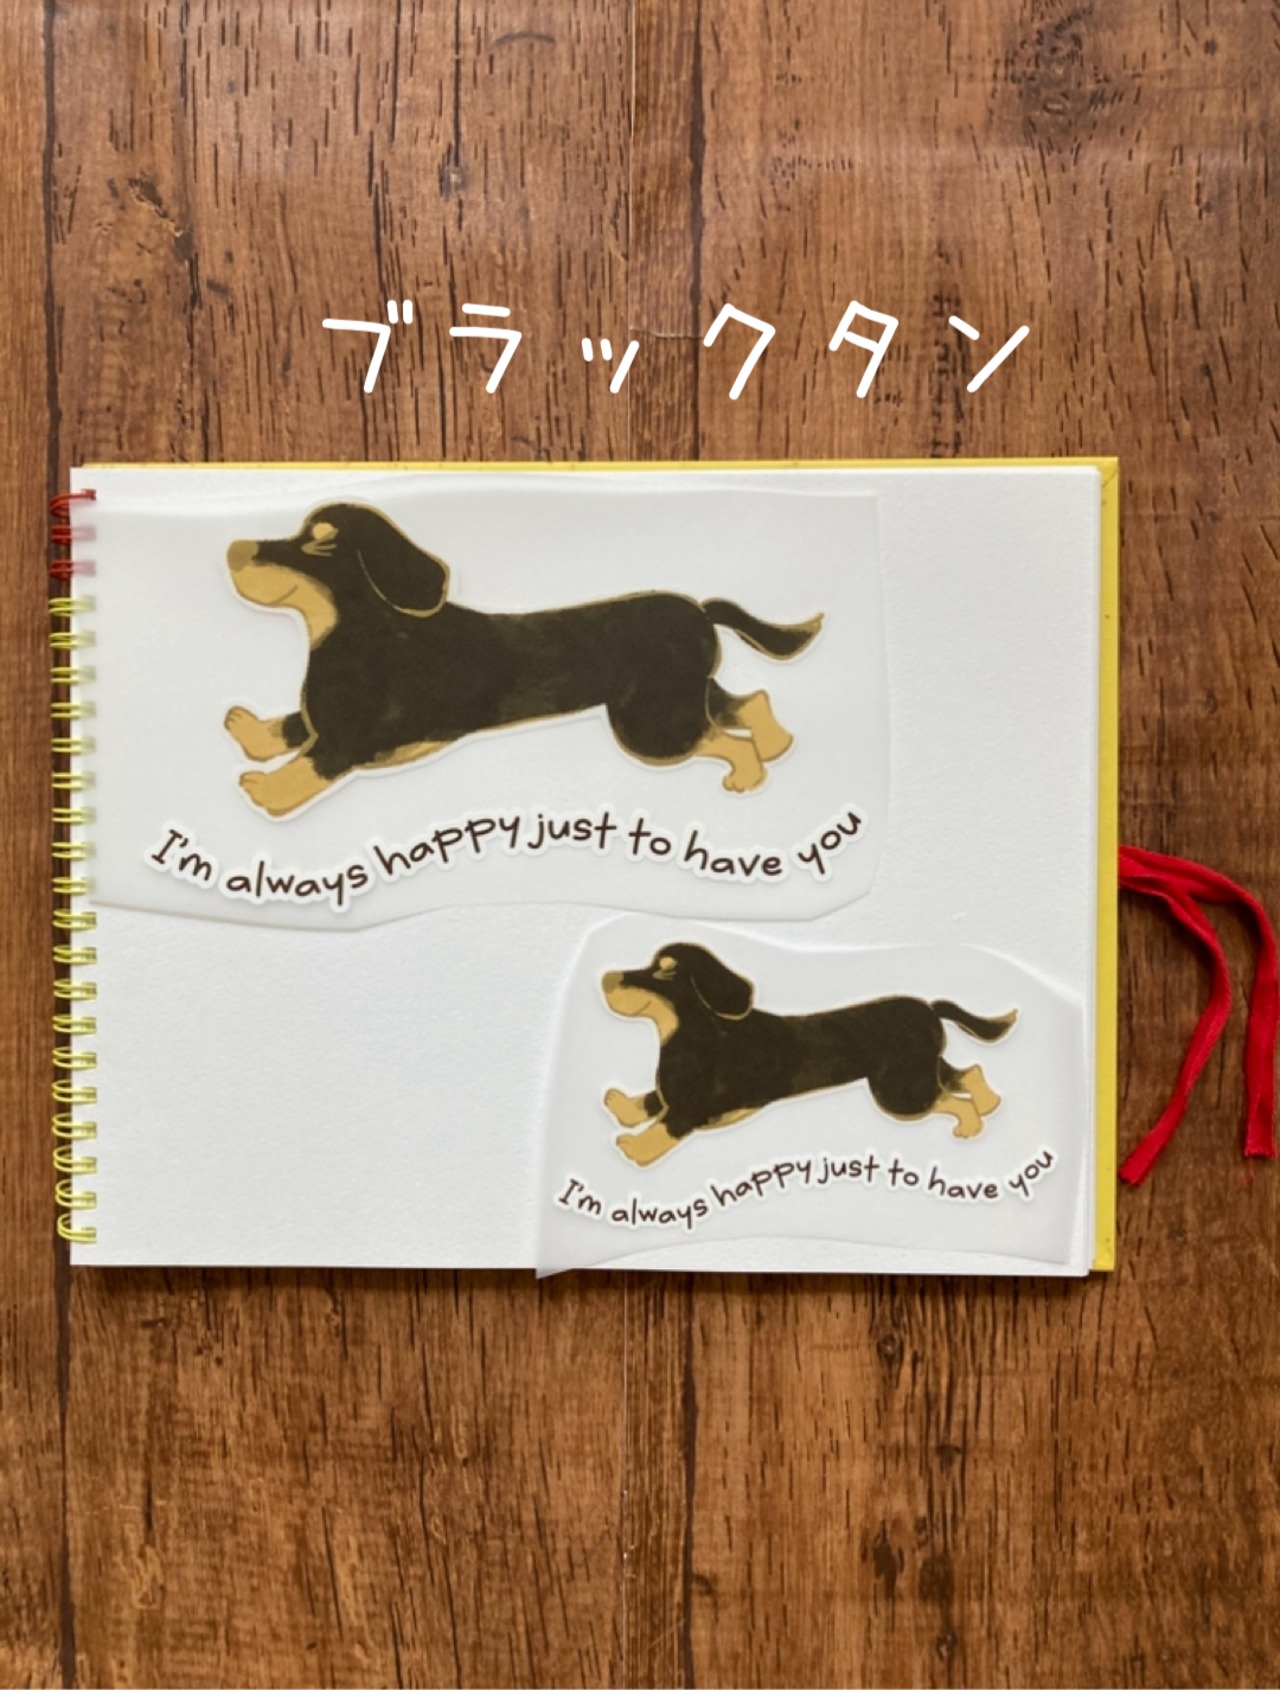 ブラックタン
I'm always happy just to have you
I'm always happy just to have you